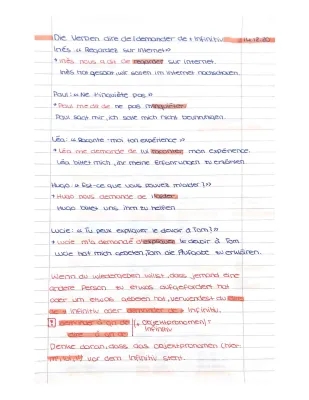 Die Verben dire de/demander de + Infinitiv
Inès: « Regardez sur internet »
* Inès nous a dit de regarder sur internet.
Inès hat gesagt, wir sollen im Internet nachschauen.
Paul: « Ne t'inquiète pas »
* Paul me dit de ne pas m'inquiéter
Paul sagt mir, ich solle mich nicht beunruhigen.
Léa: « Raconte-moi ton expérience »
* Léa me demande de lui raconter mon expérience.
Léa bittet mich, ihr meine Erfahrungen zu erzählen.
Hugo: « Est-ce que vous pouvez m'aider? »
* Hugo nous demande de l'aider
Hugo bittet uns ihm zu helfen
Lucie: « Tu peux expliquer le devoir à Tom? »
* Lucie m'a demandé d'expliquer le devoir à Tom
Lucie hat mich gebeten, Tom die Aufgabe zu erklären.
Wenn du wiedergeben willst, dass jemand eine
andere Person zu etwas aufgefordert hat
oder um etwas gebeten hat, verwendest du dire
de + Infinitiv oder demander de + Infinitiv.
demander à qn de (+ Objektpronomen) +
dire à qn de Infinitiv
Denke daran, dass das Objektpronomen (hier:
vor dem Infinitiv steht.